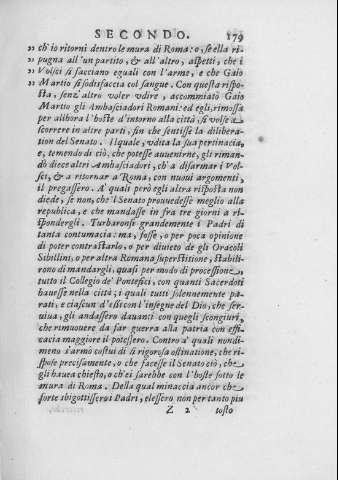 SECONDO. 179
" ch'io ritorni dentro le mura di Roma: o, se ella ri-
" pugna all'un partito, & all'altro, aspetti, che i
" Volsci si facciano eguali con l'arme, e che Gaio
" Martio si sodisfaccia col sangue. Con questa rispo-
sta, senz' altro voler vdire, accommiatò Gaio
Martio gli Ambasciadori Romani: ed egli, rimossa
per allhora l'hoste d'intorno alla città, si volse a
scorrere in altre parti, fin che sentisse la delibera-
tion del Senato. Il quale, vdita la sua pertinacia,
e, temendo di ciò, che potesse auuenirne, gli riman-
dò diece altri Ambasciadori, ch'a disarmar i Vol-
sci, & a ritornar a Roma, con nuoui argomenti,
il pregassero. A' quali però egli altra risposta non
diede, se non, che'l Senato prouuedesse meglio alla
republica, e che mandasse in fra tre giorni a ri-
spondergli. Turbaronsi grandemente i Padri di
tanta contumacia: ma, fosse, o per poca opinione
di poter contrastarlo, o per diuieto de gli Oracoli
Sibillini, o per altra Romana superstitione, stabili-
rono di mandargli, quasi per modo di processione,
tutto il Collegio de' Pontefici, con quanti Sacerdoti
hauesse nella città; i quali tutti solennemente pa-
rati; e ciascun' d'essi con l'insegne del Dio, che ser-
uiua, gli andassero dauanti con quegli scongiuri,
che rimuouere da far guerra alla patria con effi-
cacia maggiore il potessero. Contro a' quali nondi-
meno s'armò costui di sì rigorosa ostinatione, che ri-
spose precisamente, o che facesse il Senato ciò, che
egli hauea chiesto, o ch'ei sarebbe con l'hoste sotto le
mura di Roma. Della qual minaccia ancor che
forte sbigottissero i Padri, elessero non pertanto piu
Z 2 tosto